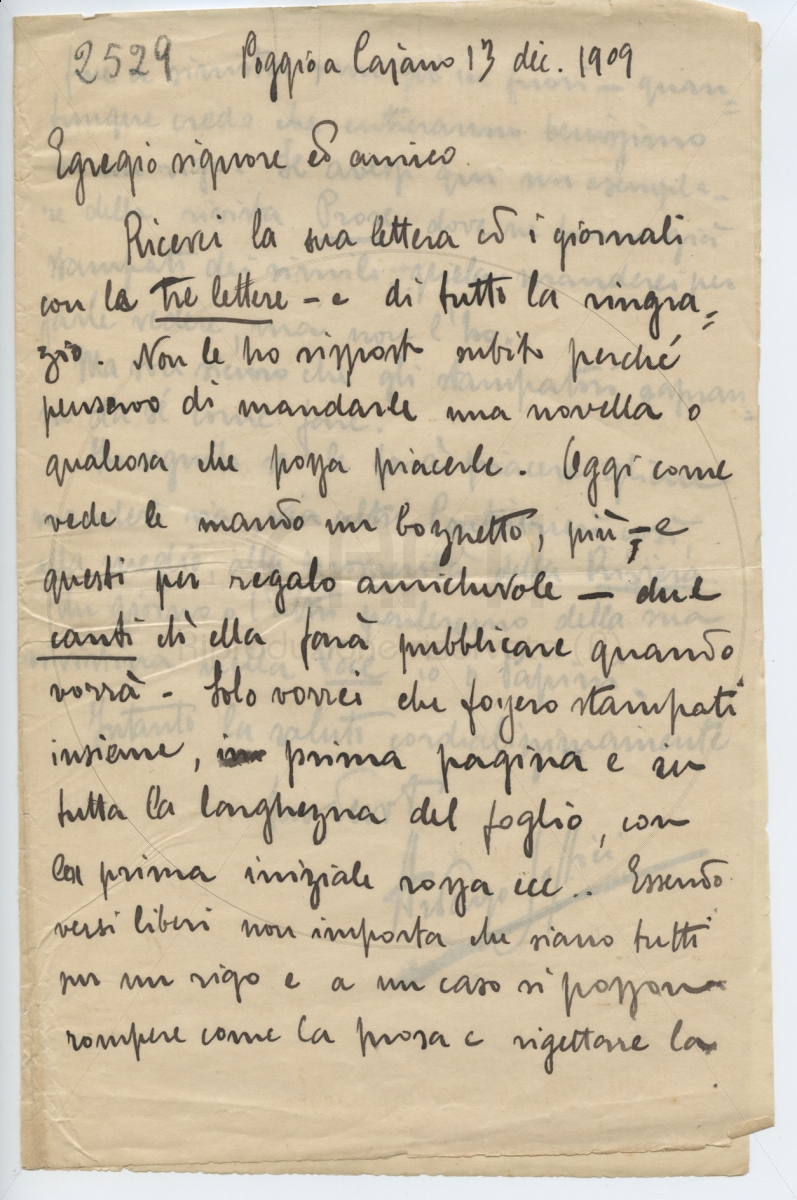 2529 Poggio a Cajano 13 dic. 1909
Egregio signore ed amico
Ricevei la sua lettera ed i giornali
con le tre lettere – e di tutto la ringra=
zio. Non le ho risposto subito perché
pensavo di mandarle una novella o
qualcosa che possa piacerle. Oggi come
vede le mando un bozzetto, più – e
questi per regalo amichevole – due
canti ch'ella farà pubblicare quando
vorrà – Solo vorrei che fossero stampati
insieme, in prima pagina e su
tutta la larghezza del foglio, con
la prima iniziale rossa ecc.. Essendo
versi liberi non importa che siano tutti
su un rigo e a un caso si possono
rompere come la prosa e rigettare la